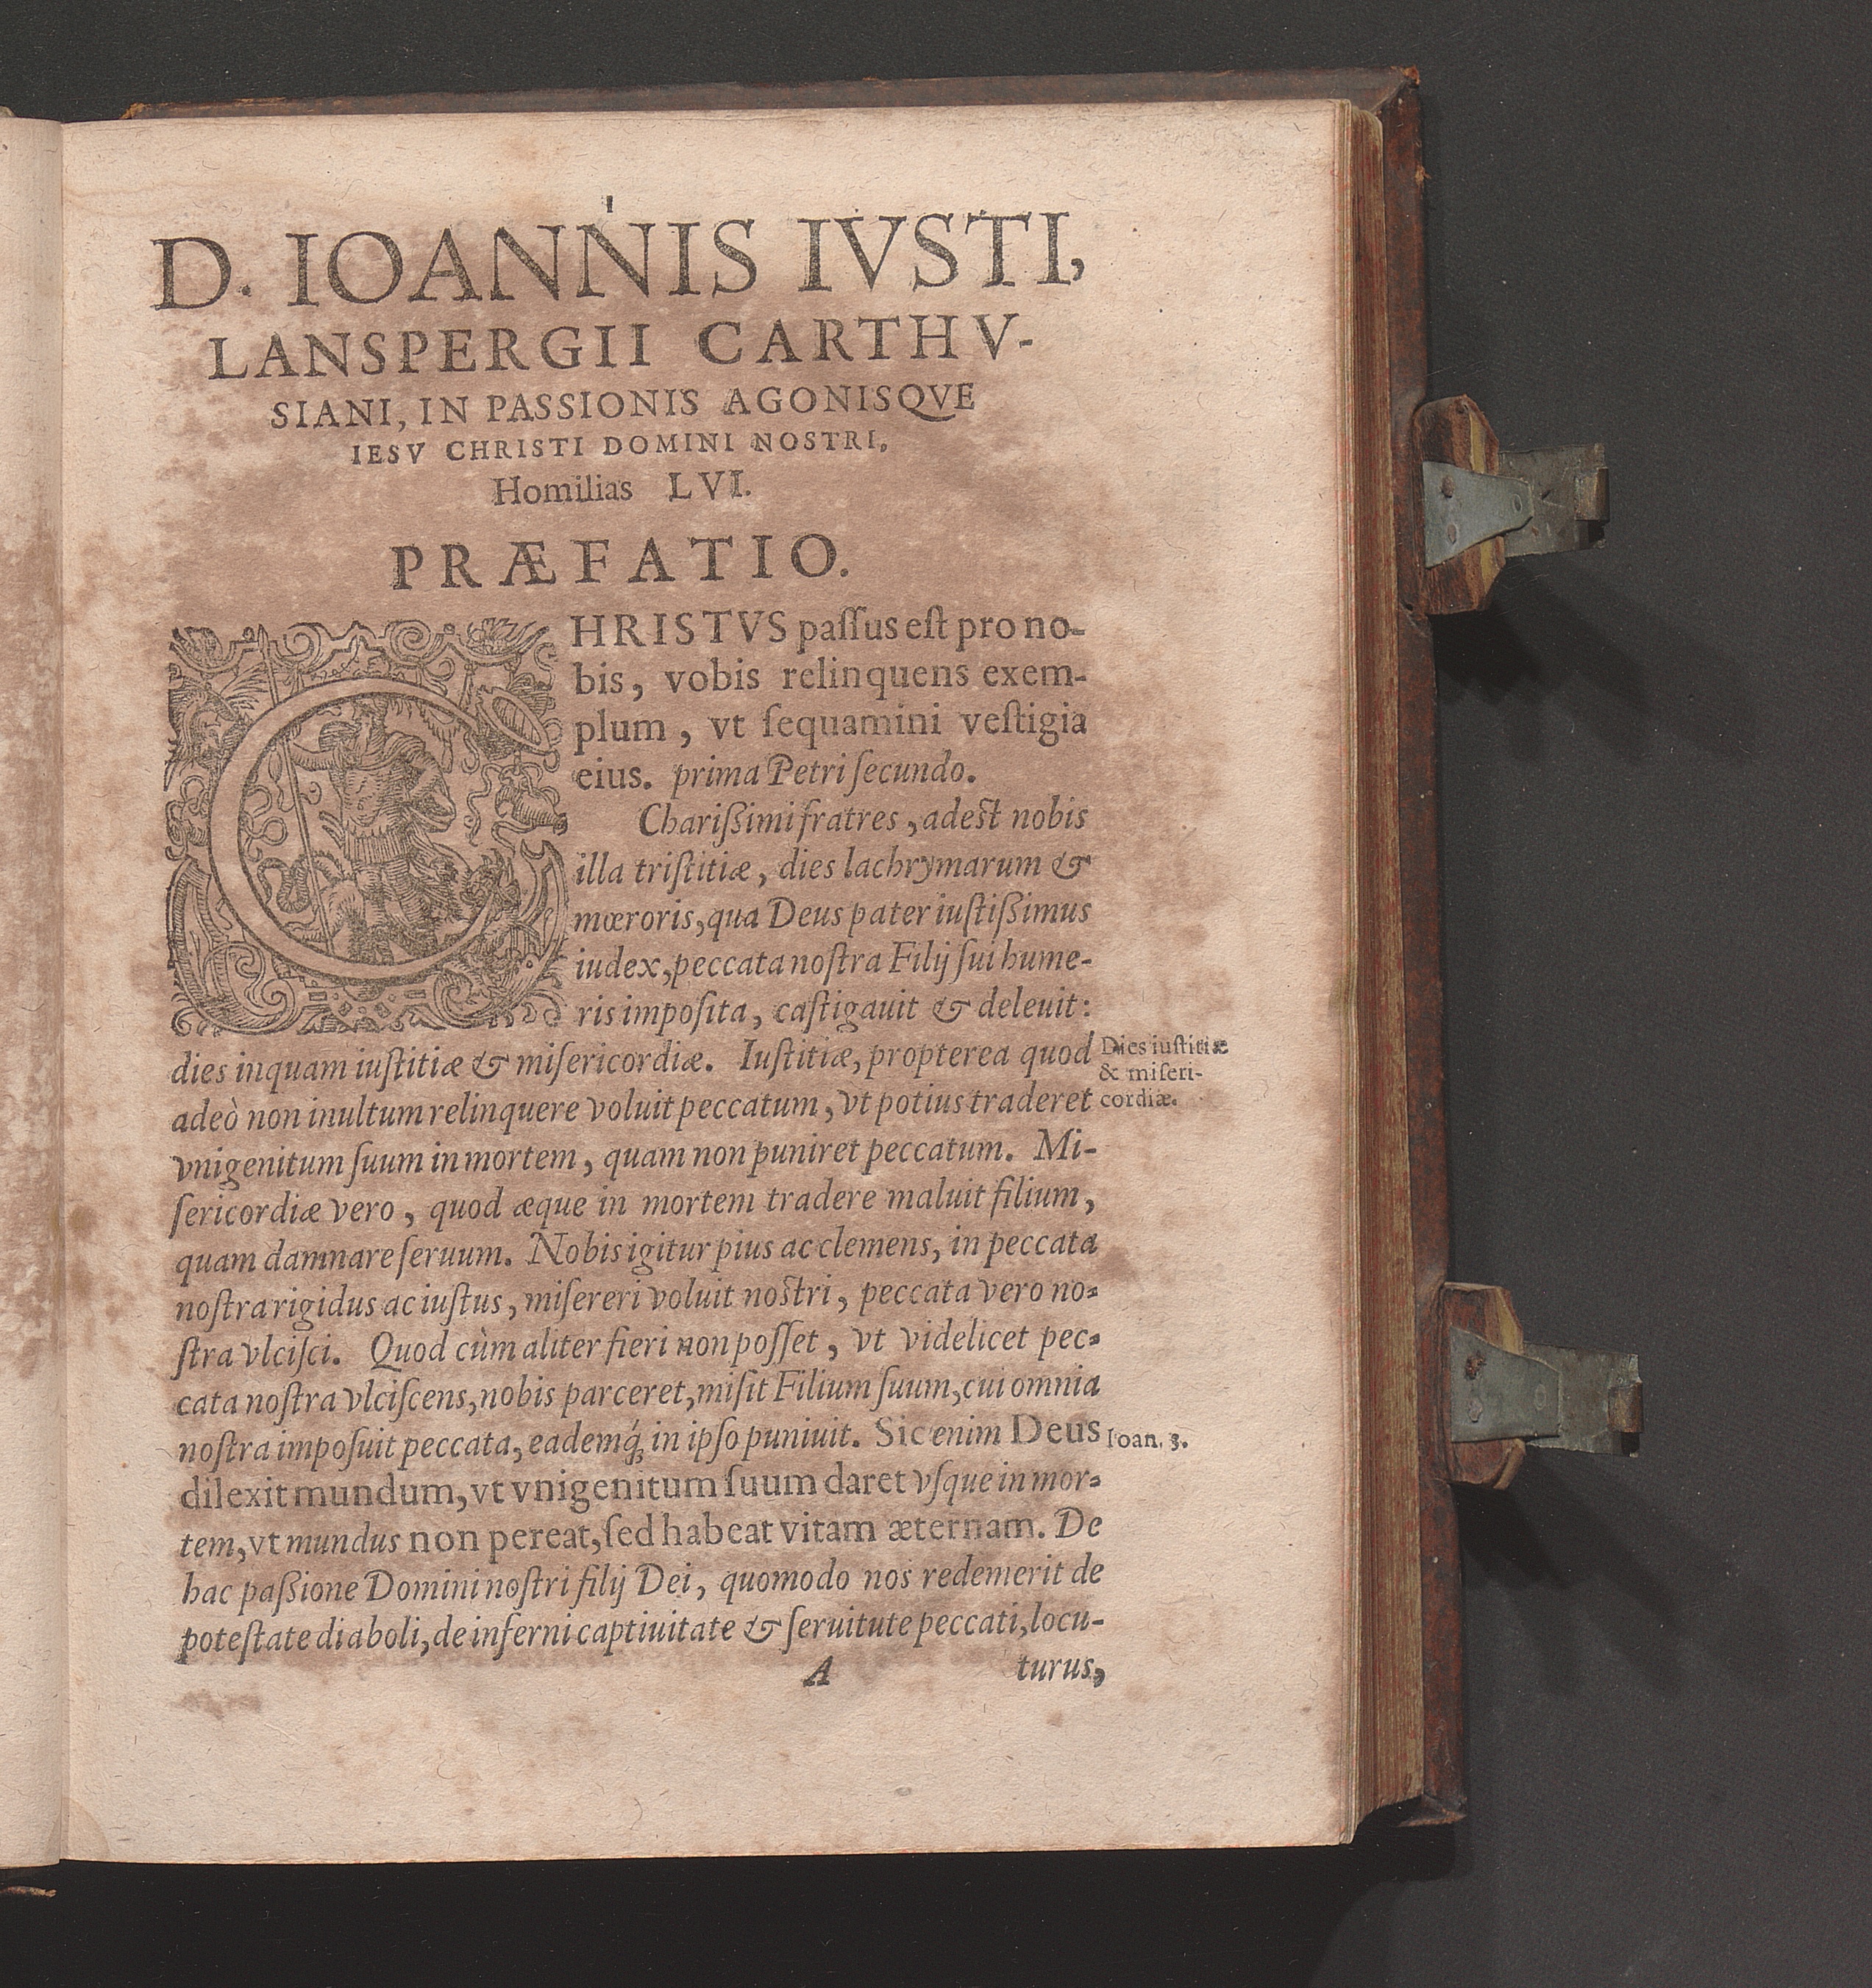 D. IOANNIS IVSTI,
LANSPERGII CARTHV-
SIANI, IN PASSIONIS AGONISQVE
IESV CHRISTI DOMINI NOSTRI,
Homilias LVI.
PRÆFATIO.
CHRISTVS paſſus eſt pro no-
bis, vobis relinquens exem-
plum, vt ſequamini veſtigia
eius. prima Petri ſecundo.
Chariſsimi fratres, adeſt nobis
illa triſtitiæ, dies lachrymarum &
mœroris, qua Deus pater iuſtiſsimus
iudex, peccata noſtra Filij ſui hume-
ris impoſita, caſtigauit & deleuit:
dies inquam iuſtitiæ & miſericordiæ. Iuſtitiæ, propterea quod
adeò non inultum relinquere voluit peccatum, vt potius traderet
vnigenitum ſuum in mortem, quam non puniret peccatum. Mi-
ſericordiæ vero, quod æque in mortem tradere maluit filium,
quam damnare ſeruum. Nobis igitur pius ac clemens, in peccata
noſtra rigidus ac iuſtus, miſereri voluit noſtri, peccata vero no-
ſtra vlciſci. Quod cùm aliter fieri non poſſet, vt videlicet pec-
cata noſtra vlciſcens, nobis parceret, miſit Filium ſuum, cui omnia
noſtra impoſuit peccata, eademq́; in ipſo puniuit. Sic enim Deus
dilexit mundum, vt vnigenitum ſuum daret vſque in mor-
tem, vt mundus non pereat, ſed habeat vitam æternam. De
hac paſsione Domini noſtri filij Dei, quomodo nos redemerit de
poteſtate diaboli, de inferni captiuitate & ſeruitute peccati, locu-
A turus,
Dies iuſtitiæ
& miſeri-
cordiæ.
Ioan. 3.